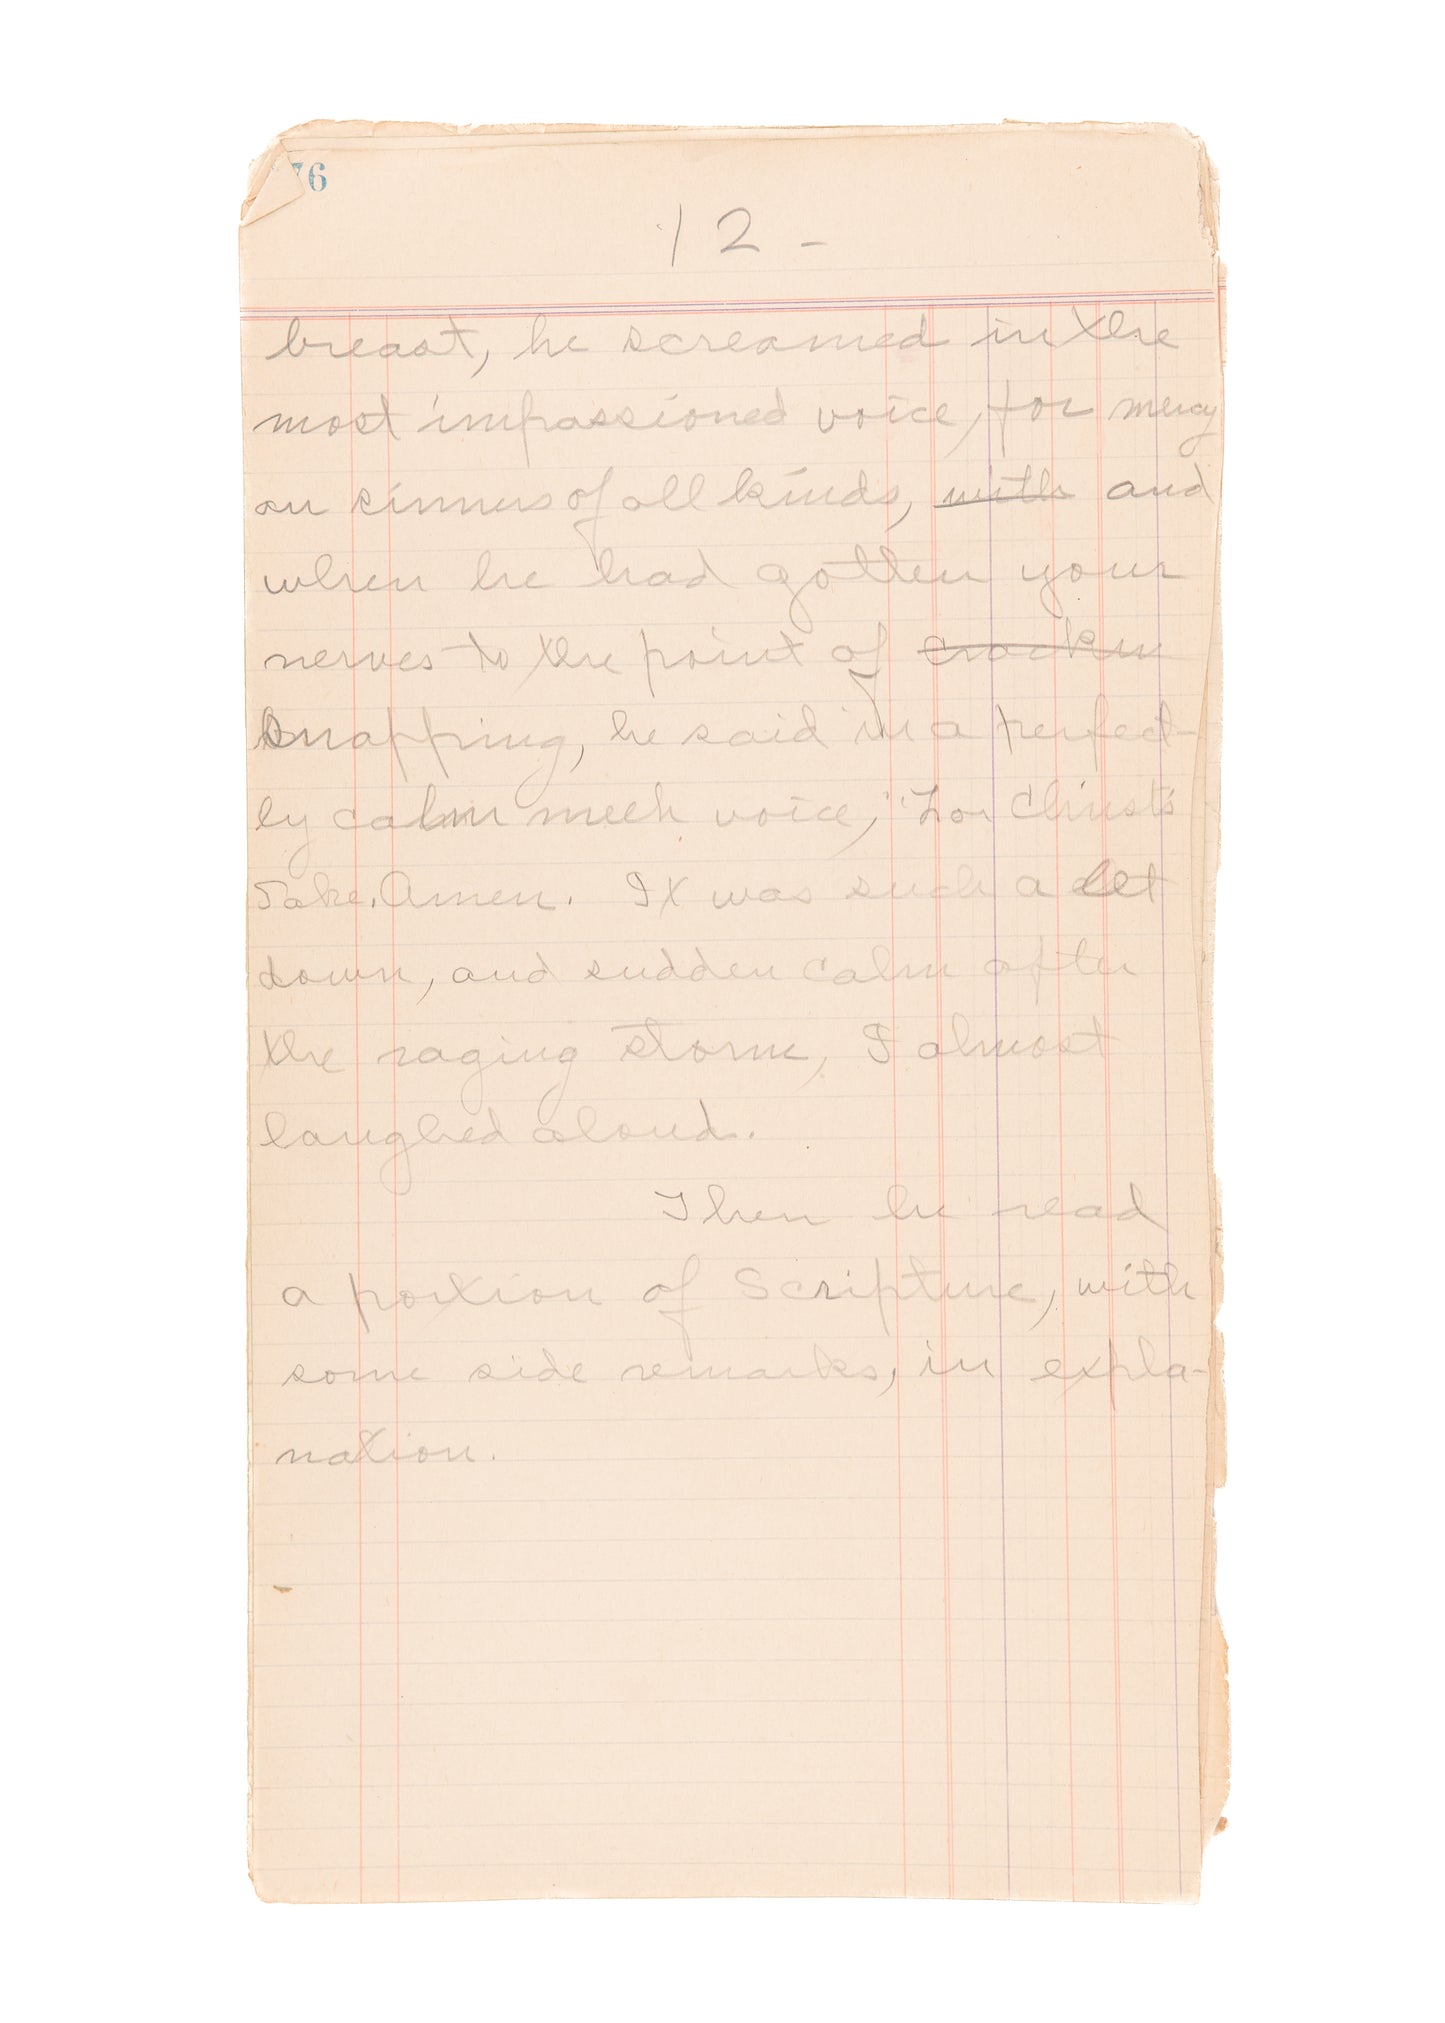 76
12-
breast, he screamed in the
most impassioned voice, for mercy
on sinners of all kinds, with and
when he had gotten your
nerves to the point of crackin
snapping, he said in a perfect-
ly calm meek voice, "For Christ's
Sake. Amen. It was such a let
down, and sudden calm after
the raging storm, I almost
laughed aloud.
Then he read
a portion of Scripture, with
some side remarks, in expla-
nation.